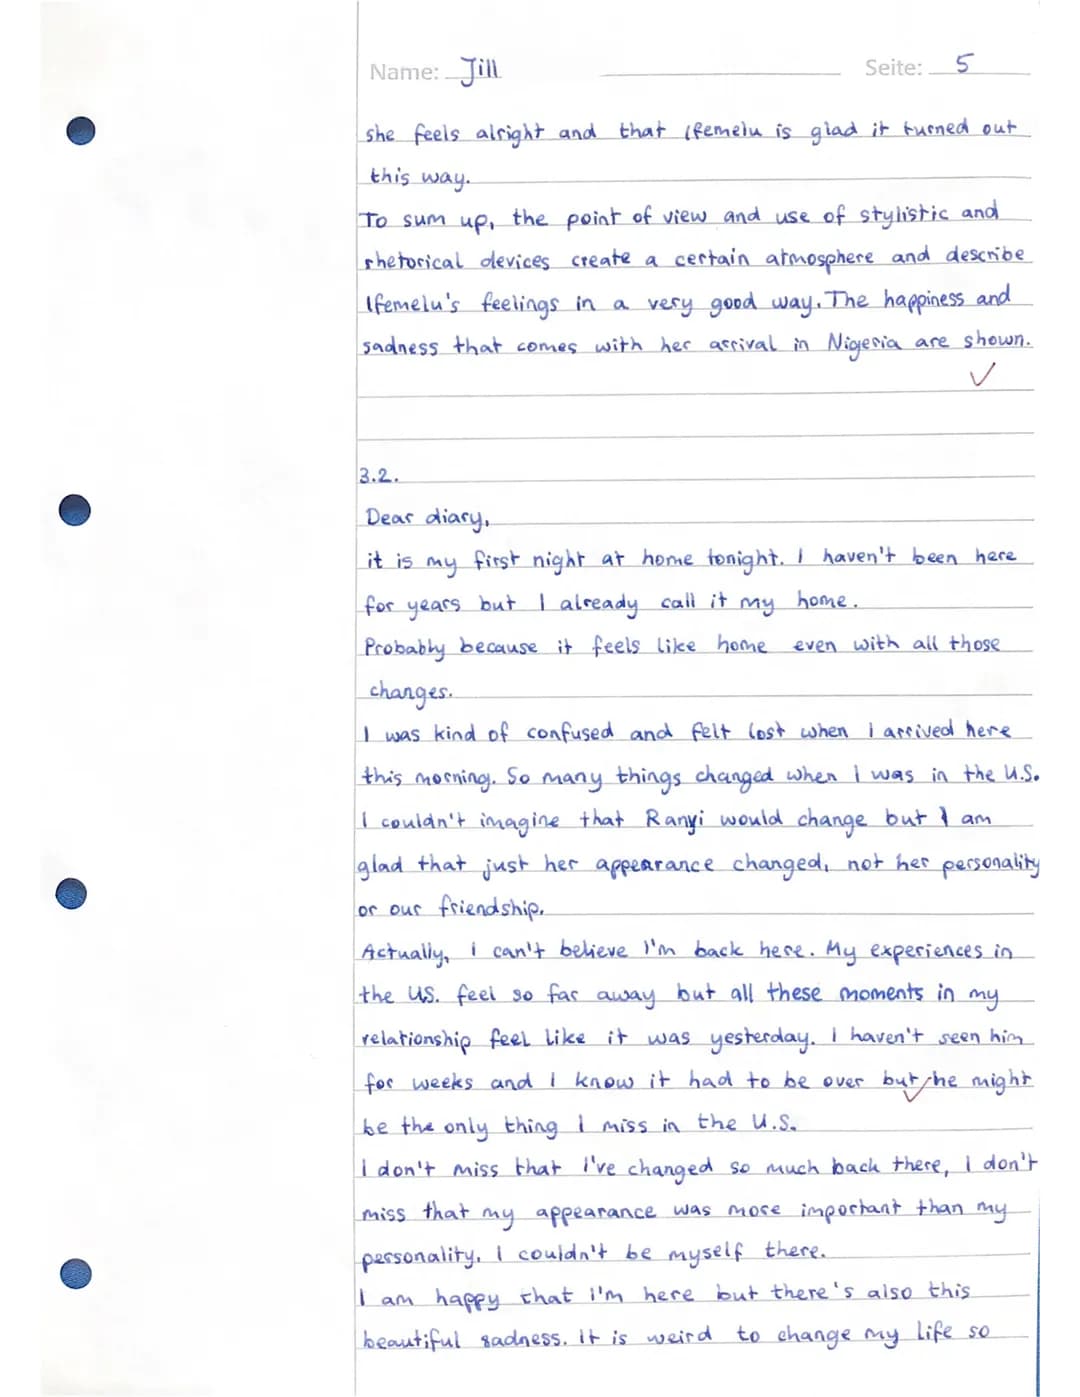 Name: Jill Seite: 5
she feels alright and that Ifemelu is glad it turned out
this way.
To sum up, the point of view and use of stylistic and
rhetorical devices create a certain atmosphere and describe
Ifemelu's feelings in a very good way. The happiness and
sadness that comes with her arrival in Nigeria are shown.
3.2.
Dear diary,
it is my first night at home tonight. I haven't been here
for years but I already call it my home.
Probably because it feels like home even with all those
changes.
I was kind of confused and felt lost when I arrived here
this morning. So many things changed when I was in the U.S.
I couldn't imagine that Ranyi would change but I am
glad that just her appearance changed, not her personality
or our friendship.
Actually, I can't believe I'm back here. My experiences in
the US. feel so far away but all these moments in my
relationship feel like it was yesterday. I haven't seen him
for weeks and I know it had to be over but he might
be the only thing I miss in the U.S.
I don't miss that I've changed so much back there, I don't
miss that my appearance was more important than my
personality. I couldn't be myself there.
I am happy that I'm here but there's also this
beautiful sadness. It is weird to change my life so